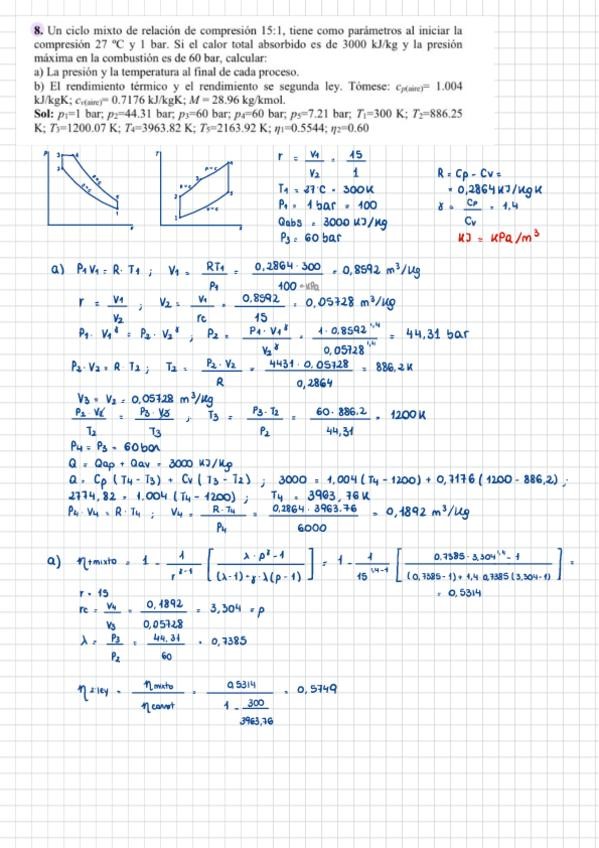 8. Un ciclo mixto de relación de compresión 15:1, tiene como parámetros al iniciar la
compresión 27 ºC y 1 bar. Si el calor total absorbido es de 3000 kJ/kg y la presión
máxima en la combustión es de 60 bar, calcular:
a) La presión y la temperatura al final de cada proceso.
b) El rendimiento térmico y el rendimiento se segunda ley. Tómese: cp(aire)= 1.004
kJ/kgK; cv(aire)= 0.7176 kJ/kgK; M = 28.96 kg/kmol.
Sol: p1=1 bar; p2=44.31 bar; p3=60 bar; p4=60 bar; p5=7.21 bar; T1=300 K; T2=886.25
K; T3=1200.07 K; T4=3963.82 K; T5=2163.92 K; η1=0.5544; η2=0.60
r = V1/V2 = 15/1
T1 = 27ºC = 300K
P1 = 1 bar = 100
Qabs = 3000 KJ/Kg
P3 = 60 bar
R = Cp - Cv =
= 0,2864 KJ/Kg K
γ = Cp/Cv = 1,4
KJ = KPa/m³
a) P1 V1 = R · T1 ; V1 = RT1/P1 = 0,2864 · 300/100 = 0,8592 m³/Kg
r = V1/V2 ; V2 = V1/rc = 0,8592/15 = 0,05728 m³/Kg
P1 · V1^γ = P2 · V2^γ ; P2 = P1 · V1^γ/V2^γ = 1 · 0,8592^1,4/0,05728^1,4 = 44,31 bar
P2 · V2 = R · T2 ; T2 = P2 · V2/R = 4431 · 0,05728/0,2864 = 886,2K
V3 = V2 = 0,05728 m³/Kg
P2 · V2/T2 = P3 · V3/T3 ; T3 = P3 · T2/P2 = 60 · 886.2/44,31 = 1200K
P4 = P3 = 60 bar
Q = Qap + Qav = 3000 KJ/Kg
Q = Cp (T4 - T3) + Cv (T3 - T2) ; 3000 = 1,004 (T4 - 1200) + 0,7176 (1200 - 886,2) ;
2774,82 = 1.004 (T4 - 1200) ; T4 = 3963,76K
P4 · V4 = R · T4 ; V4 = R · T4/P4 = 0,2864 · 3963.76/6000 = 0,1892 m³/Kg
a) ηtmixto = 1 - 1/r^γ-1 [λ · ρ^γ - 1/(λ-1) + γ · λ(ρ-1)] = 1 - 1/15^1,4-1 [0,7385 · 3,304^1,4 - 1/(0,7385 - 1) + 1,4 · 0,7385 (3,304 - 1)] =
= 0,5314
r = 15
rc = V4/V3 = 0,1892/0,05728 = 3,304 = ρ
λ = P3/P2 = 44,31/60 = 0,7385
η2ªley = ηmixto/ηcarnot = 0,5314/1 - 300/3963,76 = 0,5749